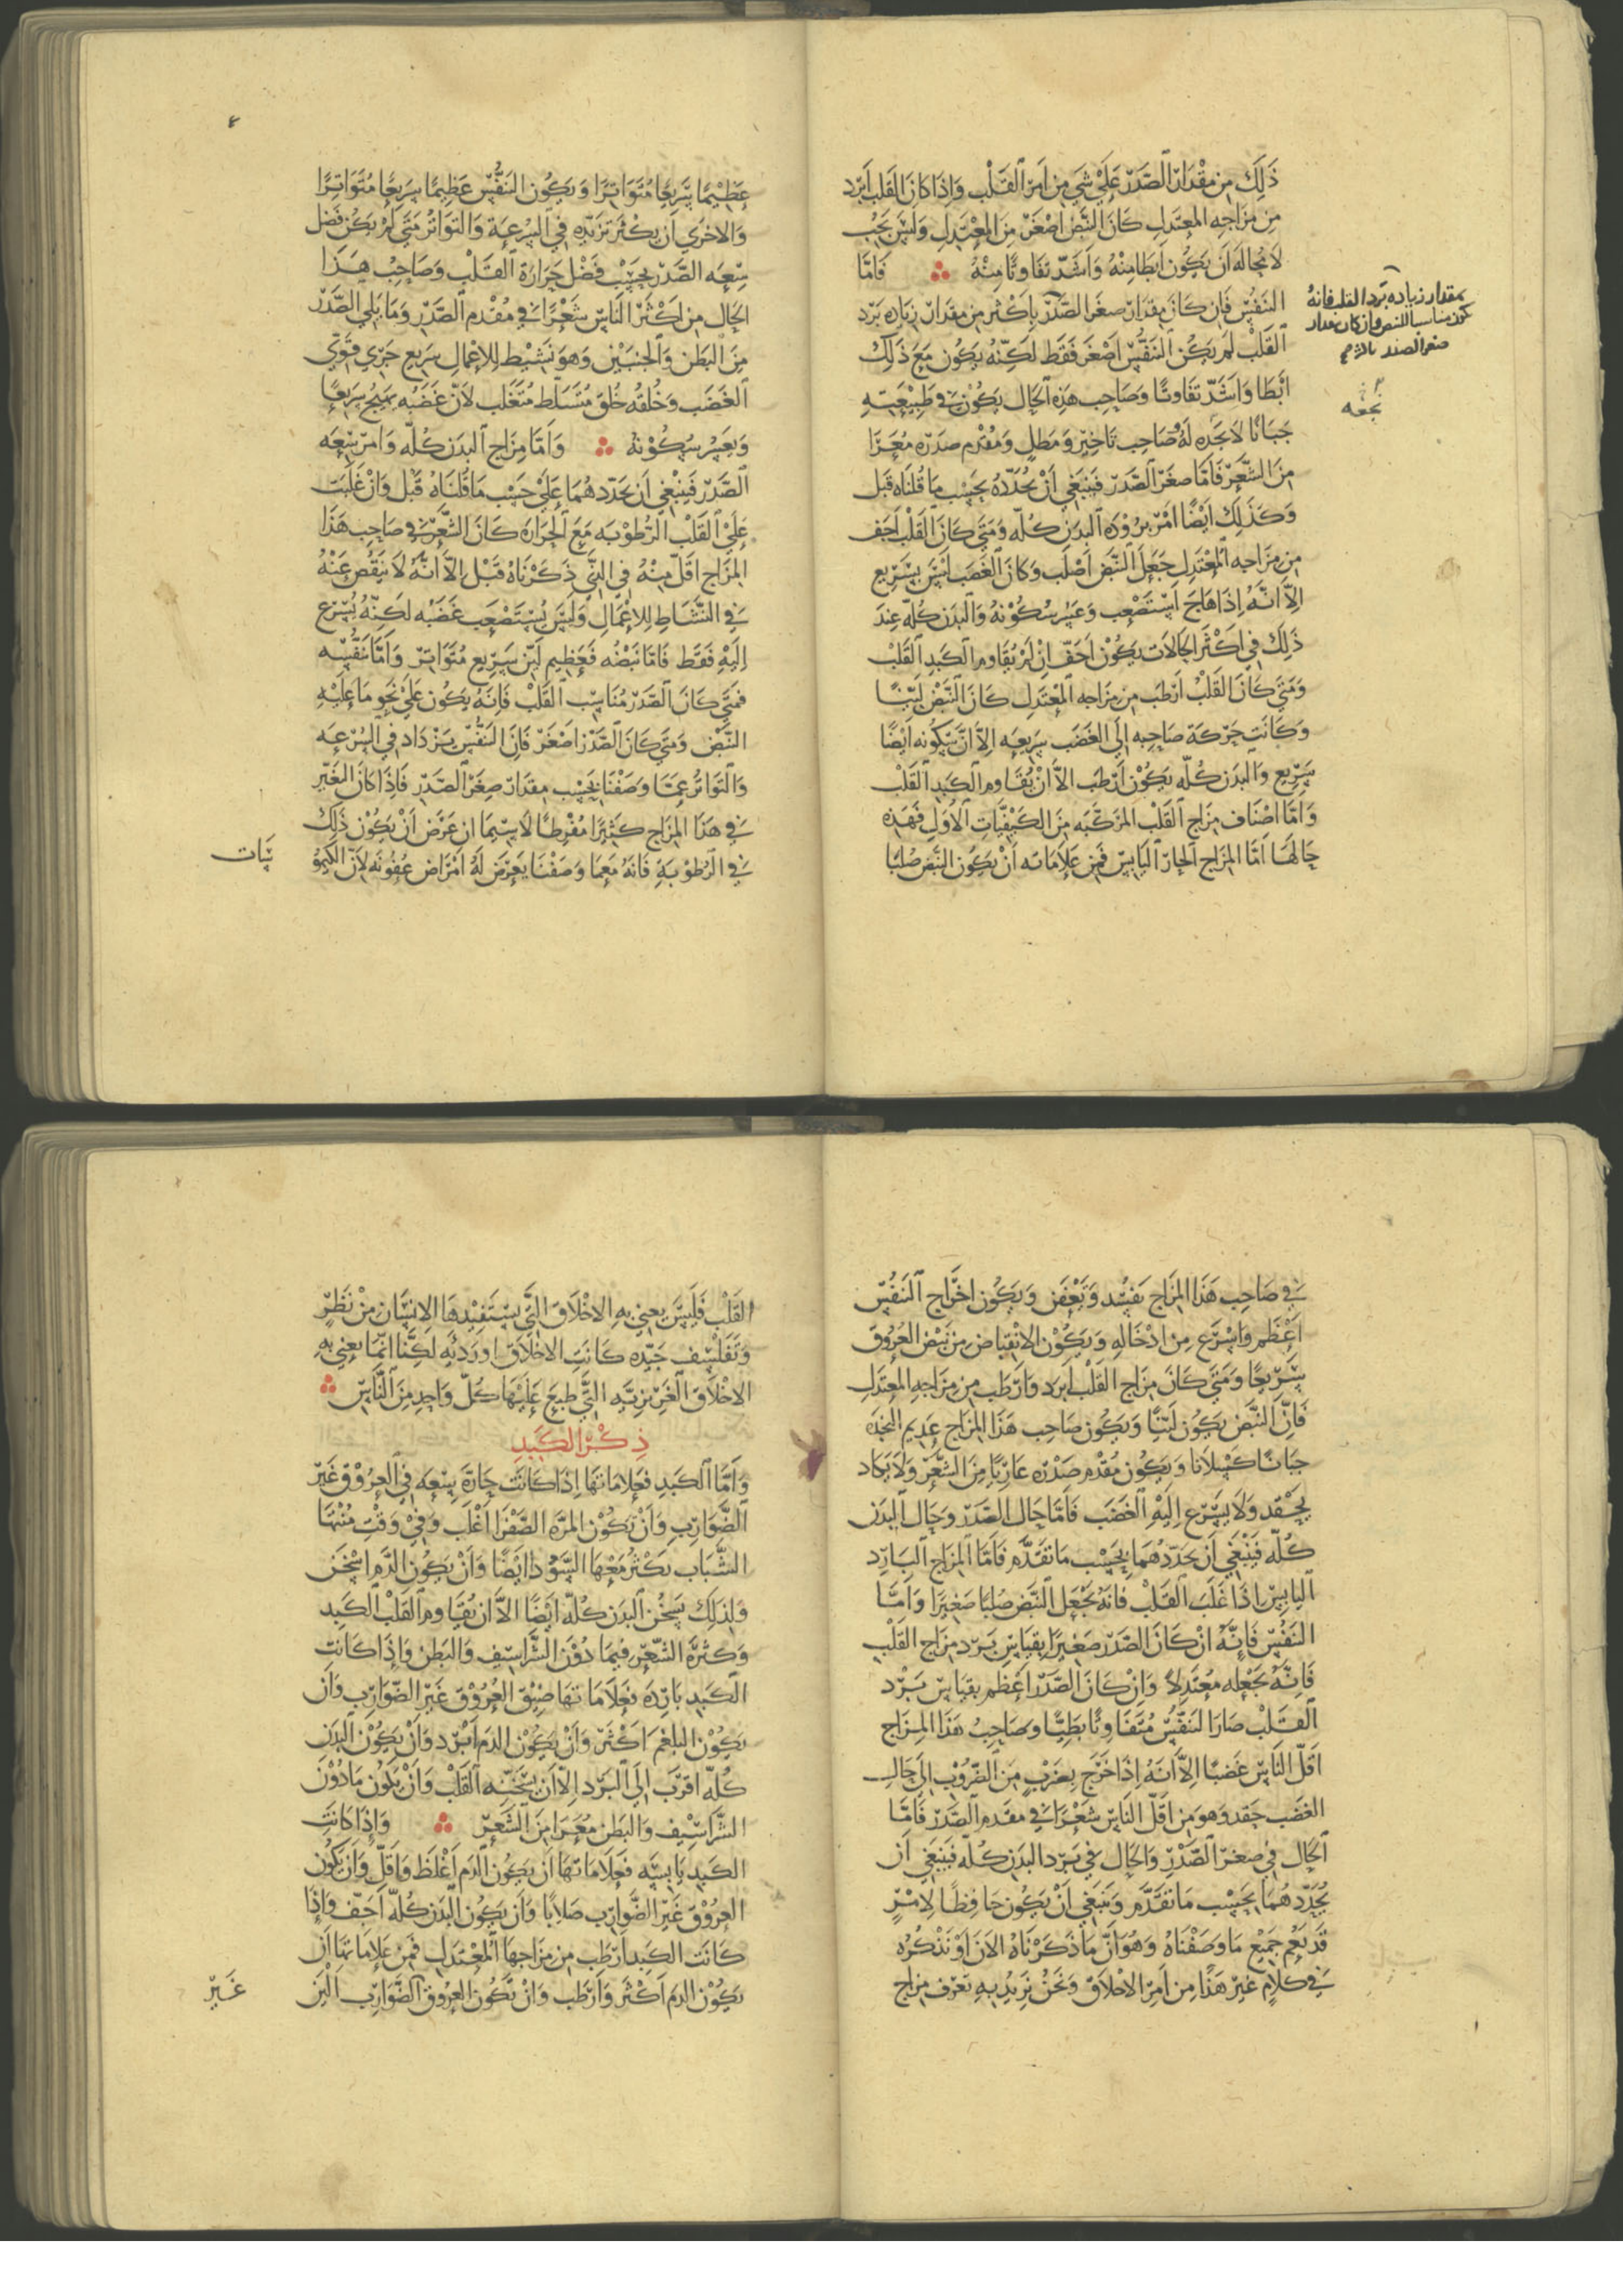 ذَلِكَ مِن مِقْدَارِ الصَّدْرِ عَلَى شَيْ مِن أَمْرِ القَلْبِ وَاِذَا كَانَ القَلب اَبرَد
مِن مِزَاجِهِ المعتَدِلِ كَانَ النَّبْضُ اَصْغَرَ مِنَ المُعْتَدِلِ وَلَيْسَ يَجِبُ
لَا مَحَالَةَ اَن يَكُونَ اَبْطَا مِنْهُ وَاَشَدَّ تفَاوتًا مِنْهُ فَامَّا
النَفَسُ فَاِن كَانَ مِقدَارُ صغَرِ الصَّدْرِ بِاَكْثَر مِن مقدَارِ زِيَادَه بَردِ
القَلْبِ لَم يَكُن النَّفَسُ اَصْغَرَ فَقَط لَكِنَّهُ يَكُون مَعَ ذَلِكَ
اَبْطَا وَاَشَدّ تفَاوتًا وَصَاحِب هَذِه الحَال يَكُون في طَبِيْعَتِهِ
جَبَانًا لَا نَجْدَه لَهُ صَاحِب تَاخِيْرٍ وَمَطلٍ وَمُقْدَم صدَرِه مُعَرَّا
مِنَ الشَّعْرِ فَاَمَّا صغَر الصَّدْرِ فَيَنبَغِي اَنْ نُحَدّدَهُ بِحَسْبِ مَا قُلنَاه قَبل
وَكَذَلِكَ اَيْضًا اَمْر بُرُوْدَه البدَنِ كُلّه وَمَتَى كَانَ القَلْبُ اَجَف
مِن مِزَاجِه المُعْتَدِلِ جَعَلَ النَّبض اَصْلَب وَكَانَ الغَضَب لَيْسَ بسَرِيع
اِلّا اَنَّهُ اِذَا هَاجَ اسْتَصْعَب وَعَسُرَ سُكُوْنهُ وَالبَدَن كُلّه عِندَ
ذَلِكَ فِي اَكْثَر الحَالَات يَكُوْن اَجَفّ اِنْ لَم يُقَاوِم الكَبِد القَلْب
وَمَتَى كَانَ القَلْبُ اَرْطَبَ مِن مِزَاجِه المُعْتَدِلِ كَانَ النَّبْض لَيِّنًا
وَكَانَت حَرَكَة صَاحِبِه اِلَى الغَضَب سَرِيعَه اِلّا اَنَّ سُكُونه اَيْضًا
سَرِيْع وَالبدَن كُلّه يَكُوْن اَرْطَب اِلّا اَنْ يُقَاوِم الكَبِد القَلْب
وَاَمَّا اَصْنَاف مِزَاج القَلْبِ المُرَكَّبَه مِنَ الكَيْفِيَّاتِ الاُوَلِ فَهَذِه
حَالهَا اَمَّا المِزَاج الحَارّ اليَابِس فَمِن عَلَامَاتِه اَنْ يَكُون النَّبض صُلبًا
بمقدار زياده برد القلب فانهُ
يكون مناسبا للنبض وان كان مقدار
صغر الصدر
نجعه
٤
عَظِيْمًا سَرِيعًا مُتَوَاتِرًا وَيَكُون النَفَسُ عَظِيمًا سَرِيعًا مُتَوَاتِرًا
وَالاحْرَى اَن يَكْثر تزَيّدُه فِي السُرْعَة وَالتوَاتُر مَتَى لَم يَكُن فَضل
سِعَه الصَّدْر بِحَسْبِ فَضْل حَرَارَة القَلْبِ وَصَاحِبُ هَذَا
الحَال مِن اَكْثَر النَاس شَعْرًا في مُقْدَم الصَّدْرِ وَمَا يَلِي الصَّدْر
مِنَ البَطن وَالجَنبَيْن وَهوَ نَشِيْط لِلاعْمَال سَرِيع جَرِي قَوِي
الغَضَب وَخُلقُه خُلق مُتَسَلِّط مُتَغَلّب لاَنّ غَضَبُه يَهِيجُ سَرِيعًا
وَيَعسِرُ سُكُوْنهُ وَاَمَّا مِزَاج البدَن كُلّه وَاَمر سَعَه
الصَّدْر فَيَنْبَغِي اَن نحَدّدهُمَا عَلَى حَسْبِ مَا قُلنَاهُ قَبْل وَاِنْ غَلَبَت
عَلَى القَلْبِ الرُطُوْبَه مَعَ الحَرَارَة كَانَ الشَّعْر في صَاحِب هَذَا
المِزَاج اَقَلّ مِنْهُ في الذِّي ذَكَرْنَاهُ قَبْل اِلّا اَنَّهُ لَا يَنقُص عَنْهُ
في النَّشَاط لِلاعْمَال وَلَيْسَ يُسْتَصْعَب غَضَبُه لَكِنّهُ يُسْرع
اِلَيْهِ فَقَط فَامَّا نَبْضُه فَعَظِيم لَيّن سَرِيع مُتَوَاتِر وَاَمَّا نَفَسُه
فمَتَى كَانَ الصَّدْر مُنَاسِب القَلْب فَاِنَّهُ يَكُون عَلَى نَحوِ مَا عَلَيْهِ
النَّبْض وَمَتَى كَانَ الصَّدْر اَصْغَر فَاِنّ النَفَسَ يَزْدَاد في السُرْعَه
وَالتَوَاتُر عَمَّا وَصَفْنَا بِحَسْبِ مِقدَار صِغَر الصَّدْر فَاِذَا كَانَ التَغَيّر
في هَذَا المِزَاج كَثِيْرًا مُفْرِطًا لَاسِيَّمَا اِن عَرَض اَنْ يَكُوْن ذَلِكَ
في الرُطُوْبَةِ فَانَهُ مَعمَا وَصَفْنَا يَعرَض لَهُ اَمْرَاض عفُونَه لاَنّ الكَيْمُوْ
سَات
في صَاحِب هَذَا المِزَاج تَفسُد وَتَعْفَن وَيَكُون اِخْرَاج النَفَسِ
اَعْظَم وَاَسْرَع مِن اِدْخَالِهِ وَيَكُوْن الاِنْقبَاض مِن نَبْض العُرُوْق
سَرِيعًا وَمَتَى كَانَ مِزَاج القَلْبِ اَبرَد وَاَرطَب مِن مِزَاجِه المعتَدِلِ
فَاِنَّ النَّبْض يَكُون لَيّنًا وَيَكُون صَاحِب هَذَا المِزَاج عَدِيم النجْدَه
جبَانًا كَسْلَانا وَيَكُوْن مُقْدَم صَدْره عَارِيًا مِنَ الشَّعْر وَلَا يَكَاد
يَحْقد وَلَا يُسْرع اِلَيْهِ الغَضَب فَامَّا حَال الصَّدْر وَحَال البدَن
كُلّه فَيَنْبَغِي اَن نحَدّدهُمَا بِحَسْبِ مَا تَقَدَّم فَامَّا المِزَاج البَارِد
اليَابِس اِذَا غَلَبَ القَلْب فَانَهُ يَجْعَل النَّبْض صُلبًا صَغِيْرًا وَامَّا
النَفَسُ فَاِنَّهُ اِنْ كَانَ الصَّدْر صَغِيْرًا بِقِيَاس بَرد مِزَاج القَلْب
فَاِنّهُ يَجْعَله مُعْتَدِلاً وَاِنْ كَانَ الصَّدْر اَعْظَم بِقيَاس بَرْد
القَلْب صَارَ النَفَسُ مُتَفَاوتًا بَطِيًّا وَصَاحِب هَذَا المِزَاج
اَقَلّ النَاس غَضبًا اِلّا اَنّهُ اِذَا خَرَج بِضَرْبٍ مِن الضُرُوْب اِلَى حَالِ
الغضَب حَقد وَهوَ مِن اَقَلّ النَاس شَعْرًا في مقَدم الصَّدْر فَامَّا
الحَال في صِغَر الصَّدْر وَالحَال في بَرد البدَن كُلّه فَيَنبَغِي اَن
نُحَدّدهُمَا بِحَسْبِ مَا تقَدَّم وَيَنبَغِي اَنْ يَكُون حَافِظًا لِاَمْرٍ
قَد يَعُم جَمِيْع مَا وَصَفْنَاهُ وَهوَ اَنّ مَا ذَكَرْنَاهُ الانَ اَوْ نَذْكُرُه
في كَلَامٍ غَيْر هَذَا مِن اَمْر الاَخْلَاق وَنَحْنُ نُرِيْدُ بِهِ تعَرّف مِزَاج
القَلْب فَلَيْسَ يعنِي بهِ الاَخْلَاق التَّي يَسْتَفِيْدهَا الاِنسَان مِنْ نَظَرٍ
وَتَفَلْسُف جَيّده كَانَت الاَخْلَاق او رَديه لَكِنَّا اِنّمَا نعني بهِ
الاَخْلَاق الغَرِيزِيّه التَّي طبِع عَلَيْهَا كُلّ وَاحِدٍ مِنَ النَّاس
ذِكْر الكَبِدِ
وَاَمَّا الكَبِد فَعَلامَاتهَا اِذَا كَانَت حَارّة سِعَه في العرُوْق غَيْر
الضَّوَارِبِ وَاَنْ تَكُوْن المرَّه الصَّفْرَا اَغْلَب وَفي وَقْت مُنْتهَا
الشَّبَاب تكثرُ مَعْهَا السَّوْدَا ايَضًا وَاَنْ يَكُون الدَّم اَسْخَن
وَلِذلِكَ يَسْخُن البدَن كُلّه اَيْضًا اِلّا اَن يُقَاوم القَلْب الكَبِد
وَكَثرَة الشَّعْر فيمَا دُوْنَ الشَّرَاسِيْف وَالبَطن وَاِذَا كَانَت
الكَبِد بَارِدَه فَعَلَامَاتهَا ضِيْق العُرُوْق غَيْر الضَّوَارِب وَاَن
يَكُوْن البلغَم اَكْثَر وَاَنْ يَكُوْن الدَم اَبْرَد وَاَنْ يَكُوْن البدَن
كُلّه اَقرَب اِلَى البَرْد اِلّا اَن يُسَخّنه القَلْب وَاَن يَكُون مَا دُوْنَ
الشَّرَاسِيْف وَالبَطن مُعَرَا مِنَ الشَعْر وَاِذَا كَانَتِ
الكَبِد يَابِسَه فَعَلَامَاتهَا اَن يَكُون الدَم اَغْلَظ وَاَقَلّ وَاَن تَكُون
العُرُوْق غَيْر الضَّوَارِب صَلَابًا وَاَن يَكُون البَدَن كُلّه اَجَفّ وَاِذَا
كَانَت الكَبِد اَرْطَب مِن مِزَاجهَا المُعْتَدِلِ فَمِن عَلَامَاتهَا اَن
يَكُوْن الدَم اَكْثَر وَاَرْطَب وَاَنْ تَكُون العُرُوْق الضَّوَارِب اَلْيَن
غَيْر